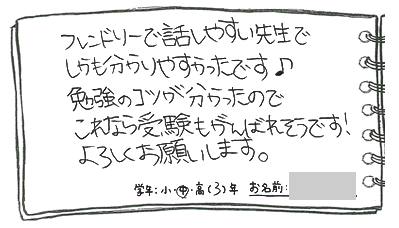 フレンドリーで話しやすい先生で
しかも分かりやすかったです♪
勉強のコツが分かったので
これなら受験もがんばれそうです!
よろしくお願いします。
学年:小・中・高(3)年 お名前: